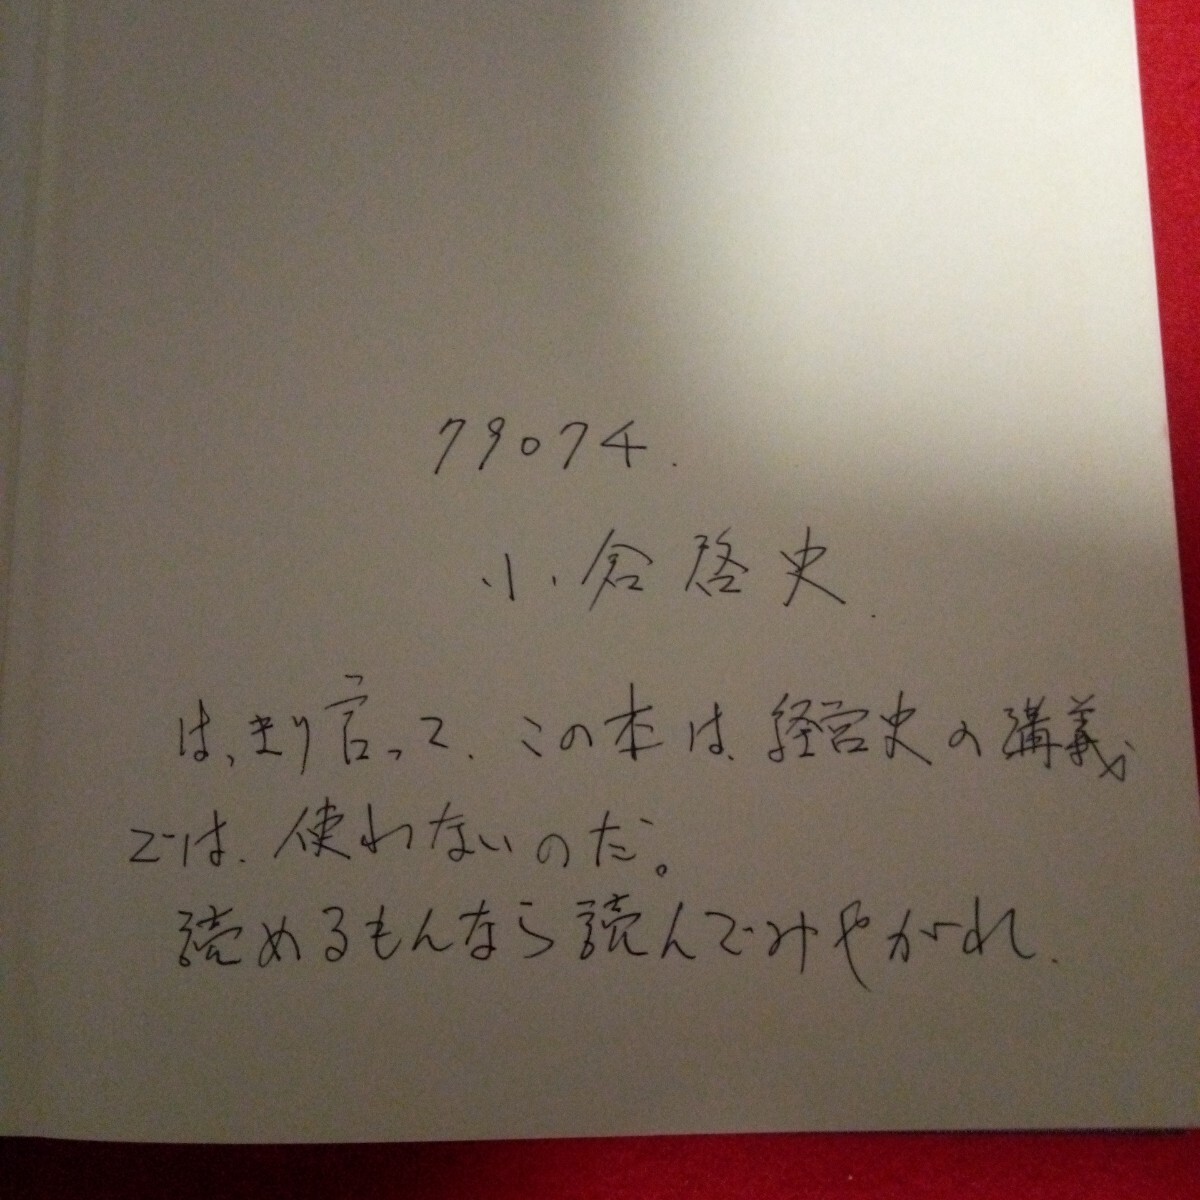 79074.
小倉啓史.
はっきり言って、この本は、経営史の講義
では、使わないのだ。
読めるもんなら読んでみやがれ.